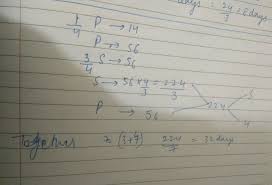 days = 24/3 = 8 days
1/4 P → 14
P → 56
3/4 S → 56
S → 56 × 4/3 = 224/3
P → 56
224
3
4
Together (3+4) 224/7 = 32 days